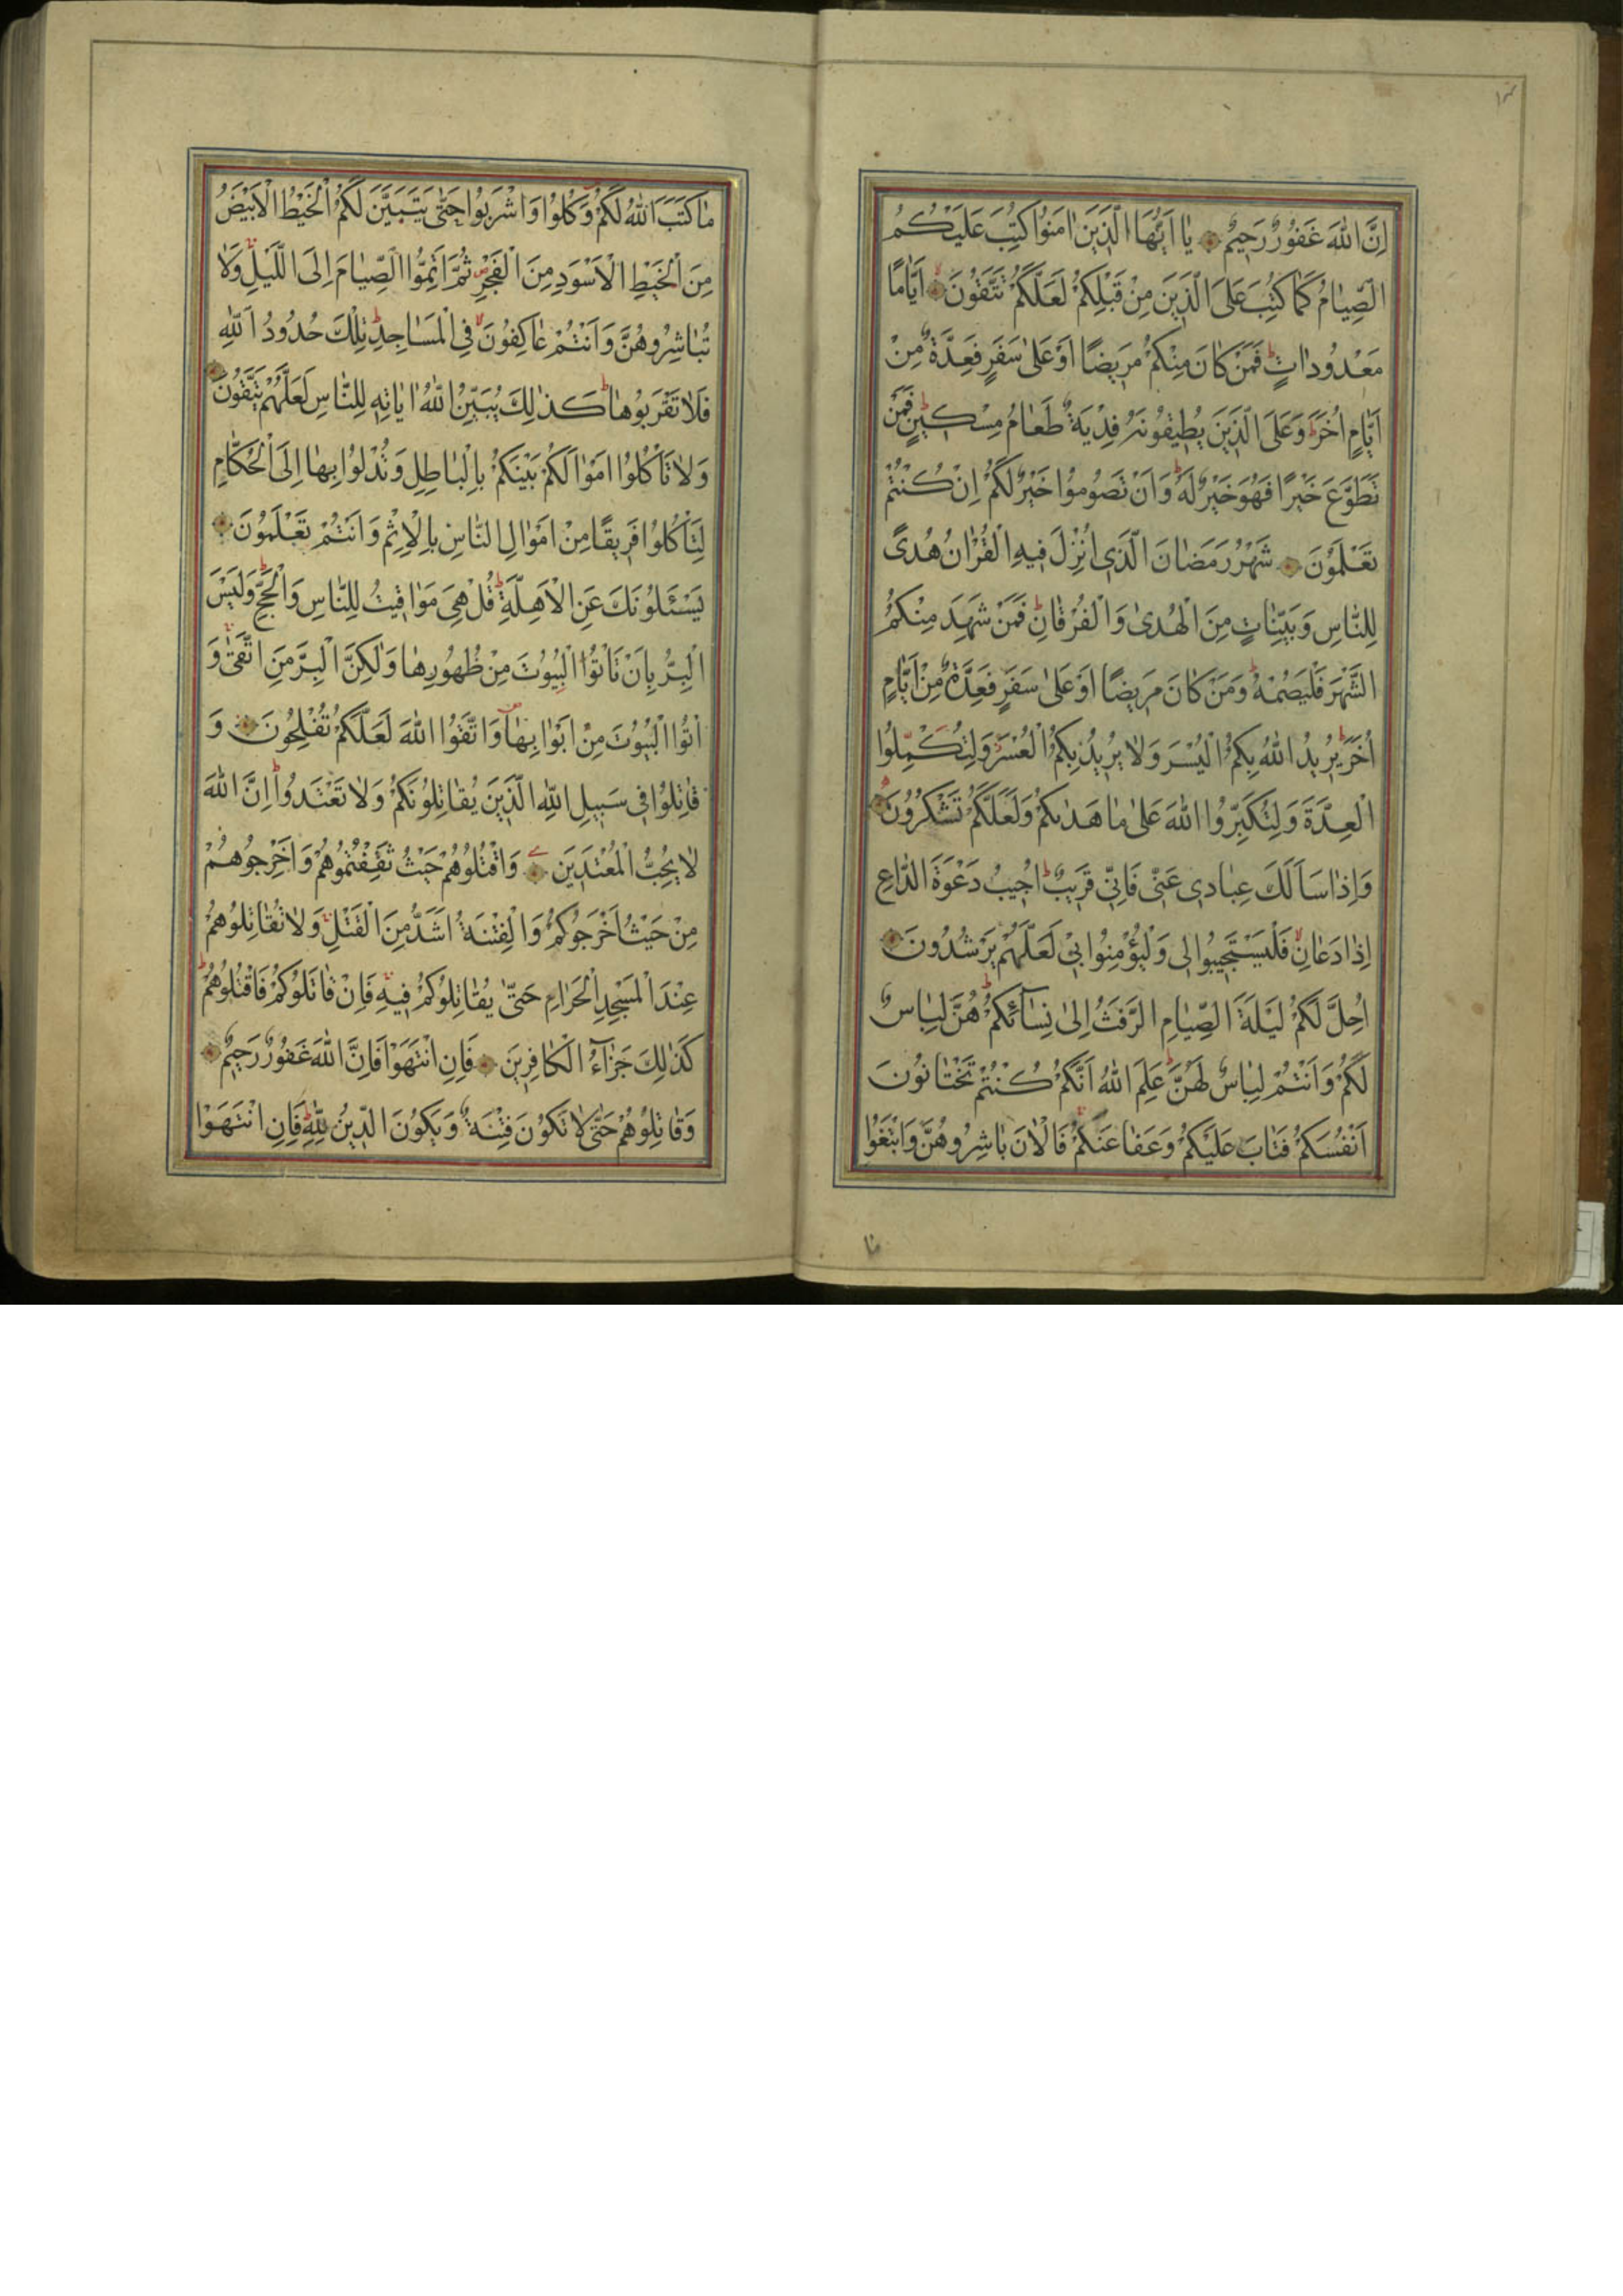 اِنَّ اللهَ غَفُورٌ رَحِيمٌ يٰا اَيُّهَا الَّذِينَ اٰمَنُوا كُتِبَ عَلَيْكُمُ
الصِّيٰامُ كَمٰا كُتِبَ عَلَى الَّذِينَ مِنْ قَبْلِكُمْ لَعَلَّكُمْ تَتَّقُونَ اَيّٰامًا
مَعْدُودٰاتٍ فَمَنْ كٰانَ مِنْكُمْ مَرِيضًا اَوْ عَلىٰ سَفَرٍ فَعِدَّةٌ مِنْ
اَيّٰامٍ اُخَرَ وَعَلَى الَّذِينَ يُطِيقُونَهُ فِدْيَةٌ طَعٰامُ مِسْكِينٍ فَمَنْ
تَطَوَّعَ خَيْرًا فَهُوَ خَيْرٌ لَهُ وَاَنْ تَصُومُوا خَيْرٌ لَكُمْ اِنْ كُنْتُمْ
تَعْلَمُونَ شَهْرُ رَمَضٰانَ الَّذِي اُنْزِلَ فِيهِ الْقُرْاٰنُ هُدًى
لِلنّٰاسِ وَبَيِّنٰاتٍ مِنَ الْهُدىٰ وَالْفُرْقٰانِ فَمَنْ شَهِدَ مِنْكُمُ
الشَّهْرَ فَلْيَصُمْهُ وَمَنْ كٰانَ مَرِيضًا اَوْ عَلىٰ سَفَرٍ فَعِدَّةٌ مِنْ اَيّٰامٍ
اُخَرَ يُرِيدُ اللهُ بِكُمُ الْيُسْرَ وَلٰا يُرِيدُ بِكُمُ الْعُسْرَ وَلِتُكَمِّلُوا
الْعِدَّةَ وَلِتُكَبِّرُوا اللهَ عَلىٰ مٰا هَدٰىكُمْ وَلَعَلَّكُمْ تَشْكُرُونَ
وَاِذٰا سَاَلَكَ عِبٰادِي عَنّي فَاِنّي قَرِيبٌ اُجِيبُ دَعْوَةَ الدّٰاعِ
اِذٰا دَعٰانِ فَلْيَسْتَجِيبُوا لي وَلْيُؤْمِنُوا بي لَعَلَّهُمْ يَرْشُدُونَ
اُحِلَّ لَكُمْ لَيْلَةَ الصِّيٰامِ الرَّفَثُ اِلىٰ نِسٰآئِكُمْ هُنَّ لِبٰاسٌ
لَكُمْ وَاَنْتُمْ لِبٰاسٌ لَهُنَّ عَلِمَ اللهُ اَنَّكُمْ كُنْتُمْ تَخْتٰانُونَ
اَنْفُسَكُمْ فَتٰابَ عَلَيْكُمْ وَعَفٰا عَنْكُمْ فَالْاٰنَ بٰاشِرُوهُنَّ وَابْتَغُوا
مٰا
مٰا كَتَبَ اللهُ لَكُمْ وَكُلُوا وَاشْرَبُوا حَتّٰى يَتَبَيَّنَ لَكُمُ الْخَيْطُ الْاَبْيَضُ
مِنَ الْخَيْطِ الْاَسْوَدِ مِنَ الْفَجْرِ ثُمَّ اَتِمُّوا الصِّيٰامَ اِلَى اللَّيْلِ وَلٰا
تُبٰاشِرُوهُنَّ وَاَنْتُمْ عٰاكِفُونَ فِي الْمَسٰاجِدِ تِلْكَ حُدُودُ اللهِ
فَلٰا تَقْرَبُوهٰا كَذٰلِكَ يُبَيِّنُ اللهُ اٰيٰاتِهِ لِلنّٰاسِ لَعَلَّهُمْ يَتَّقُونَ
وَلٰا تَاْكُلُوا اَمْوٰالَكُمْ بَيْنَكُمْ بِالْبٰاطِلِ وَتُدْلُوا بِهٰا اِلَى الْحُكّٰامِ
لِتَاْكُلُوا فَرِيقًا مِنْ اَمْوٰالِ النّٰاسِ بِالْاِثْمِ وَاَنْتُمْ تَعْلَمُونَ
يَسْئَلُونَكَ عَنِ الْاَهِلَّةِ قُلْ هِيَ مَوٰاقِيتُ لِلنّٰاسِ وَالْحَجِّ وَلَيْسَ
الْبِرُّ بِاَنْ تَاْتُوا الْبُيُوتَ مِنْ ظُهُورِهٰا وَلٰكِنَّ الْبِرَّ مَنِ اتَّقىٰ وَ
اْتُوا الْبُيُوتَ مِنْ اَبْوٰابِهٰا وَاتَّقُوا اللهَ لَعَلَّكُمْ تُفْلِحُونَ وَ
قٰاتِلُوا فِي سَبِيلِ اللهِ الَّذِينَ يُقٰاتِلُونَكُمْ وَلٰا تَعْتَدُوا اِنَّ اللهَ
لٰا يُحِبُّ الْمُعْتَدِينَ وَاقْتُلُوهُمْ حَيْثُ ثَقِفْتُمُوهُمْ وَاَخْرِجُوهُمْ
مِنْ حَيْثُ اَخْرَجُوكُمْ وَالْفِتْنَةُ اَشَدُّ مِنَ الْقَتْلِ وَلٰا تُقٰاتِلُوهُمْ
عِنْدَ الْمَسْجِدِ الْحَرٰامِ حَتّٰى يُقٰاتِلُوكُمْ فِيهِ فَاِنْ قٰاتَلُوكُمْ فَاقْتُلُوهُمْ
كَذٰلِكَ جَزٰآءُ الْكٰافِرِينَ فَاِنِ انْتَهَوْا فَاِنَّ اللهَ غَفُورٌ رَحِيمٌ
وَقٰاتِلُوهُمْ حَتّٰى لٰا تَكُونَ فِتْنَةٌ وَيَكُونَ الدِّينُ لِلّٰهِ فَاِنِ انْتَهَوْا